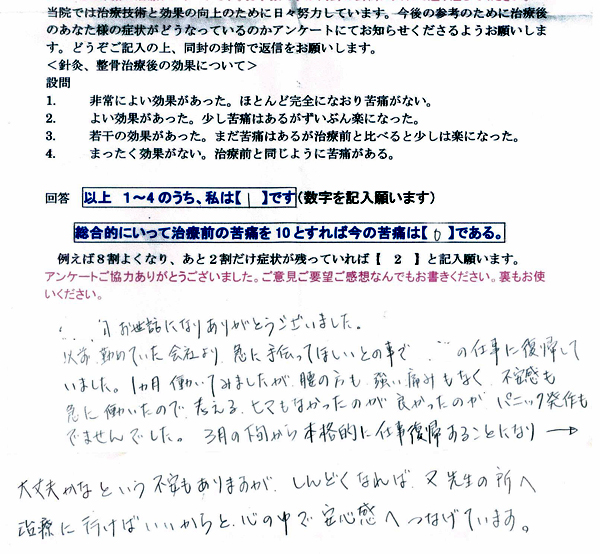 当院では治療技術と効果の向上のために日々努力しています。今後の参考のために治療後
のあなた様の症状がどうなっているのかアンケートにてお知らせくださるようお願いしま
す。どうぞご記入の上、同封の封筒で返信をお願いします。
＜針灸、整骨治療後の効果について＞
設問
1. 非常によい効果があった。ほとんど完全になおり苦痛がない。
2. よい効果があった。少し苦痛はあるがずいぶん楽になった。
3. 若干の効果があった。まだ苦痛はあるが治療前と比べると少しは楽になった。
4. まったく効果がない。治療前と同じように苦痛がある。
回答 以上 1～4のうち、私は【 1 】です(数字を記入願います)
総合的にいって治療前の苦痛を10とすれば今の苦痛は【 0 】である。
例えば8割よくなり、あと2割だけ症状が残っていれば【 2 】と記入願います。
アンケートご協力ありがとうございました。ご意見ご要望ご感想なんでもお書きください。裏もお使
いください。
お世話になりありがとうございました。
以前、勤めていた会社より、急に手伝ってほしいとの事で、の仕事に復帰して
いました。1ヵ月働いてみましたが、腰の方も、強い痛みもなく、不安感も
急に働いたので、考える、ヒマもなかったのが良かったのか、パニック発作も
でませんでした。3月の下旬から本格的に仕事復帰することになり→
大丈夫かなという不安もありますが、しんどくなれば、又先生の所へ
治療に行けばいいからと、心の中で安心感へつなげています。